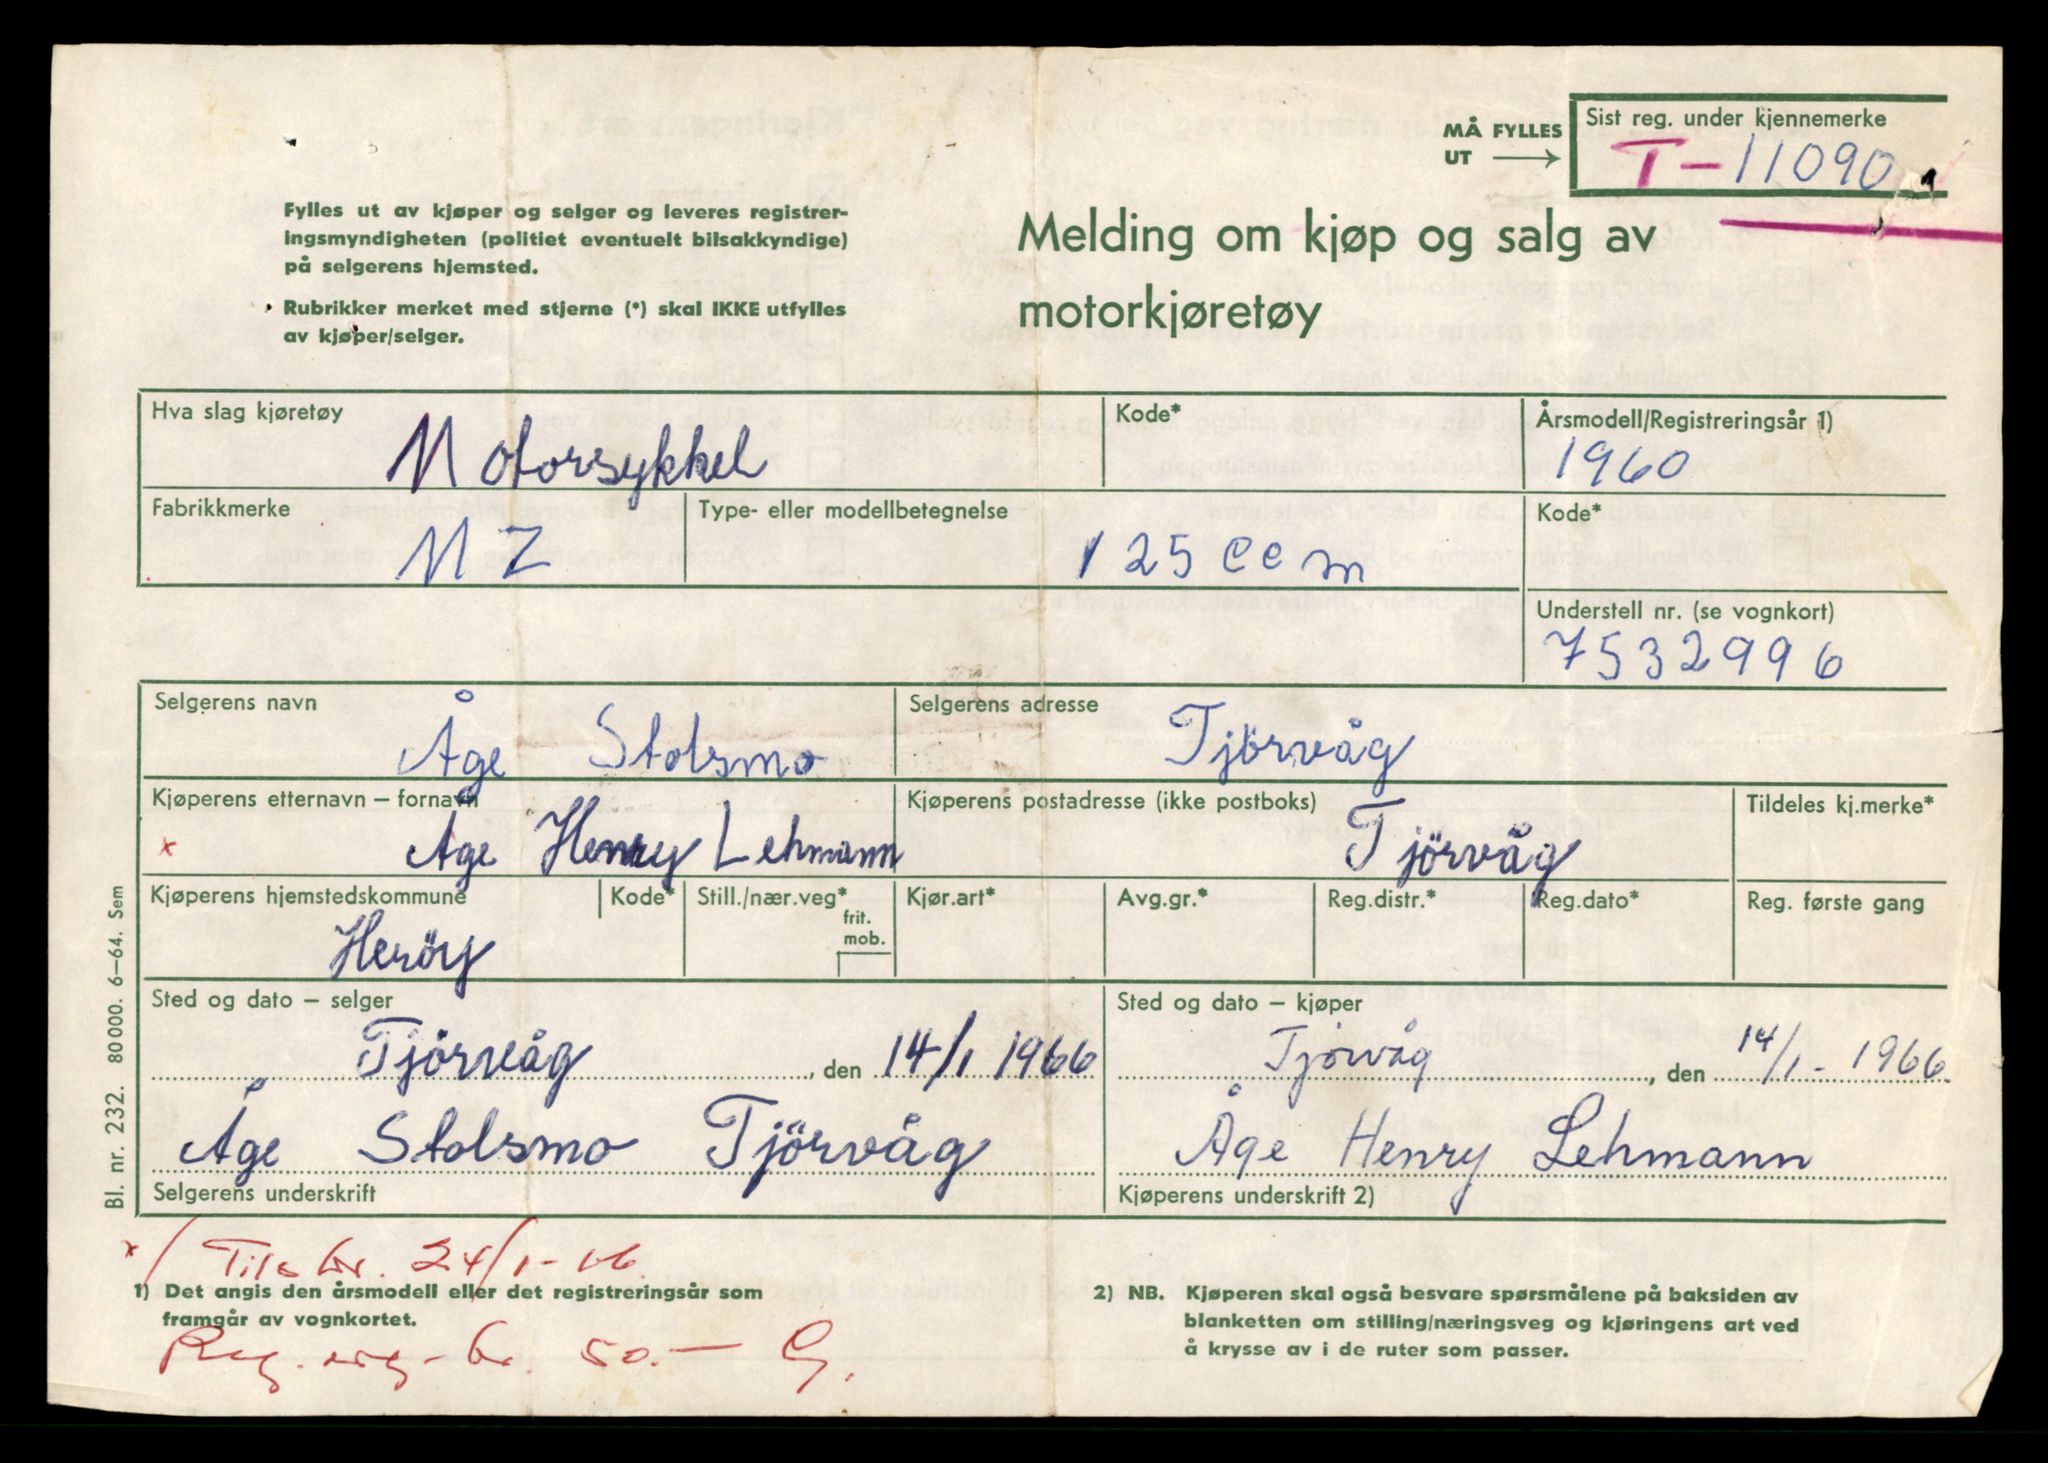 MÅ FYLLES
UT →
Sist reg. under kjennemerke
T-11090
Fylles ut av kjøper og selger og leveres registrer-
ingsmyndigheten (politiet eventuelt bilsakkyndige)
på selgerens hjemsted.
Rubrikker merket med stjerne (*) skal IKKE utfylles
av kjøper/selger.
Melding om kjøp og salg av
motorkjøretøy
Hva slag kjøretøy
Motorsykkel
Kode*
Årsmodell/Registreringsår 1)
1960
Fabrikkmerke
MZ
Type- eller modellbetegnelse
125 ccm
Kode*
Understell nr. (se vognkort)
7532996
Selgerens navn
Åge Stolsmo
Selgerens adresse
Tjörvåg
Kjøperens etternavn – fornavn
x Åge Henry Lehmann
Kjøperens postadresse (ikke postboks)
Tjörvåg
Tildeles kj.merke*
Kjøperens hjemstedskommune
Heröy
Kode*
Still./nær.veg*
frit.
mob.
Kjør.art*
Avg.gr.*
Reg.distr.*
Reg.dato*
Reg. første gang
Sted og dato – selger
Tjörvåg, den 14/1 1966
Åge Stolsmo Tjörvåg
Selgerens underskrift
Sted og dato – kjøper
Tjörvåg, den 14/1- 1966
Åge Henry Lehmann
Kjøperens underskrift 2)
Bl. nr. 232. 80000. 6–64. Sem
x/ 24/1-66
1) Det angis den årsmodell eller det registreringsår som
framgår av vognkortet.
Reg. kr. 50.-
2) NB. Kjøperen skal også besvare spørsmålene på baksiden av
blanketten om stilling/næringsveg og kjøringens art ved
å krysse av i de ruter som passer.